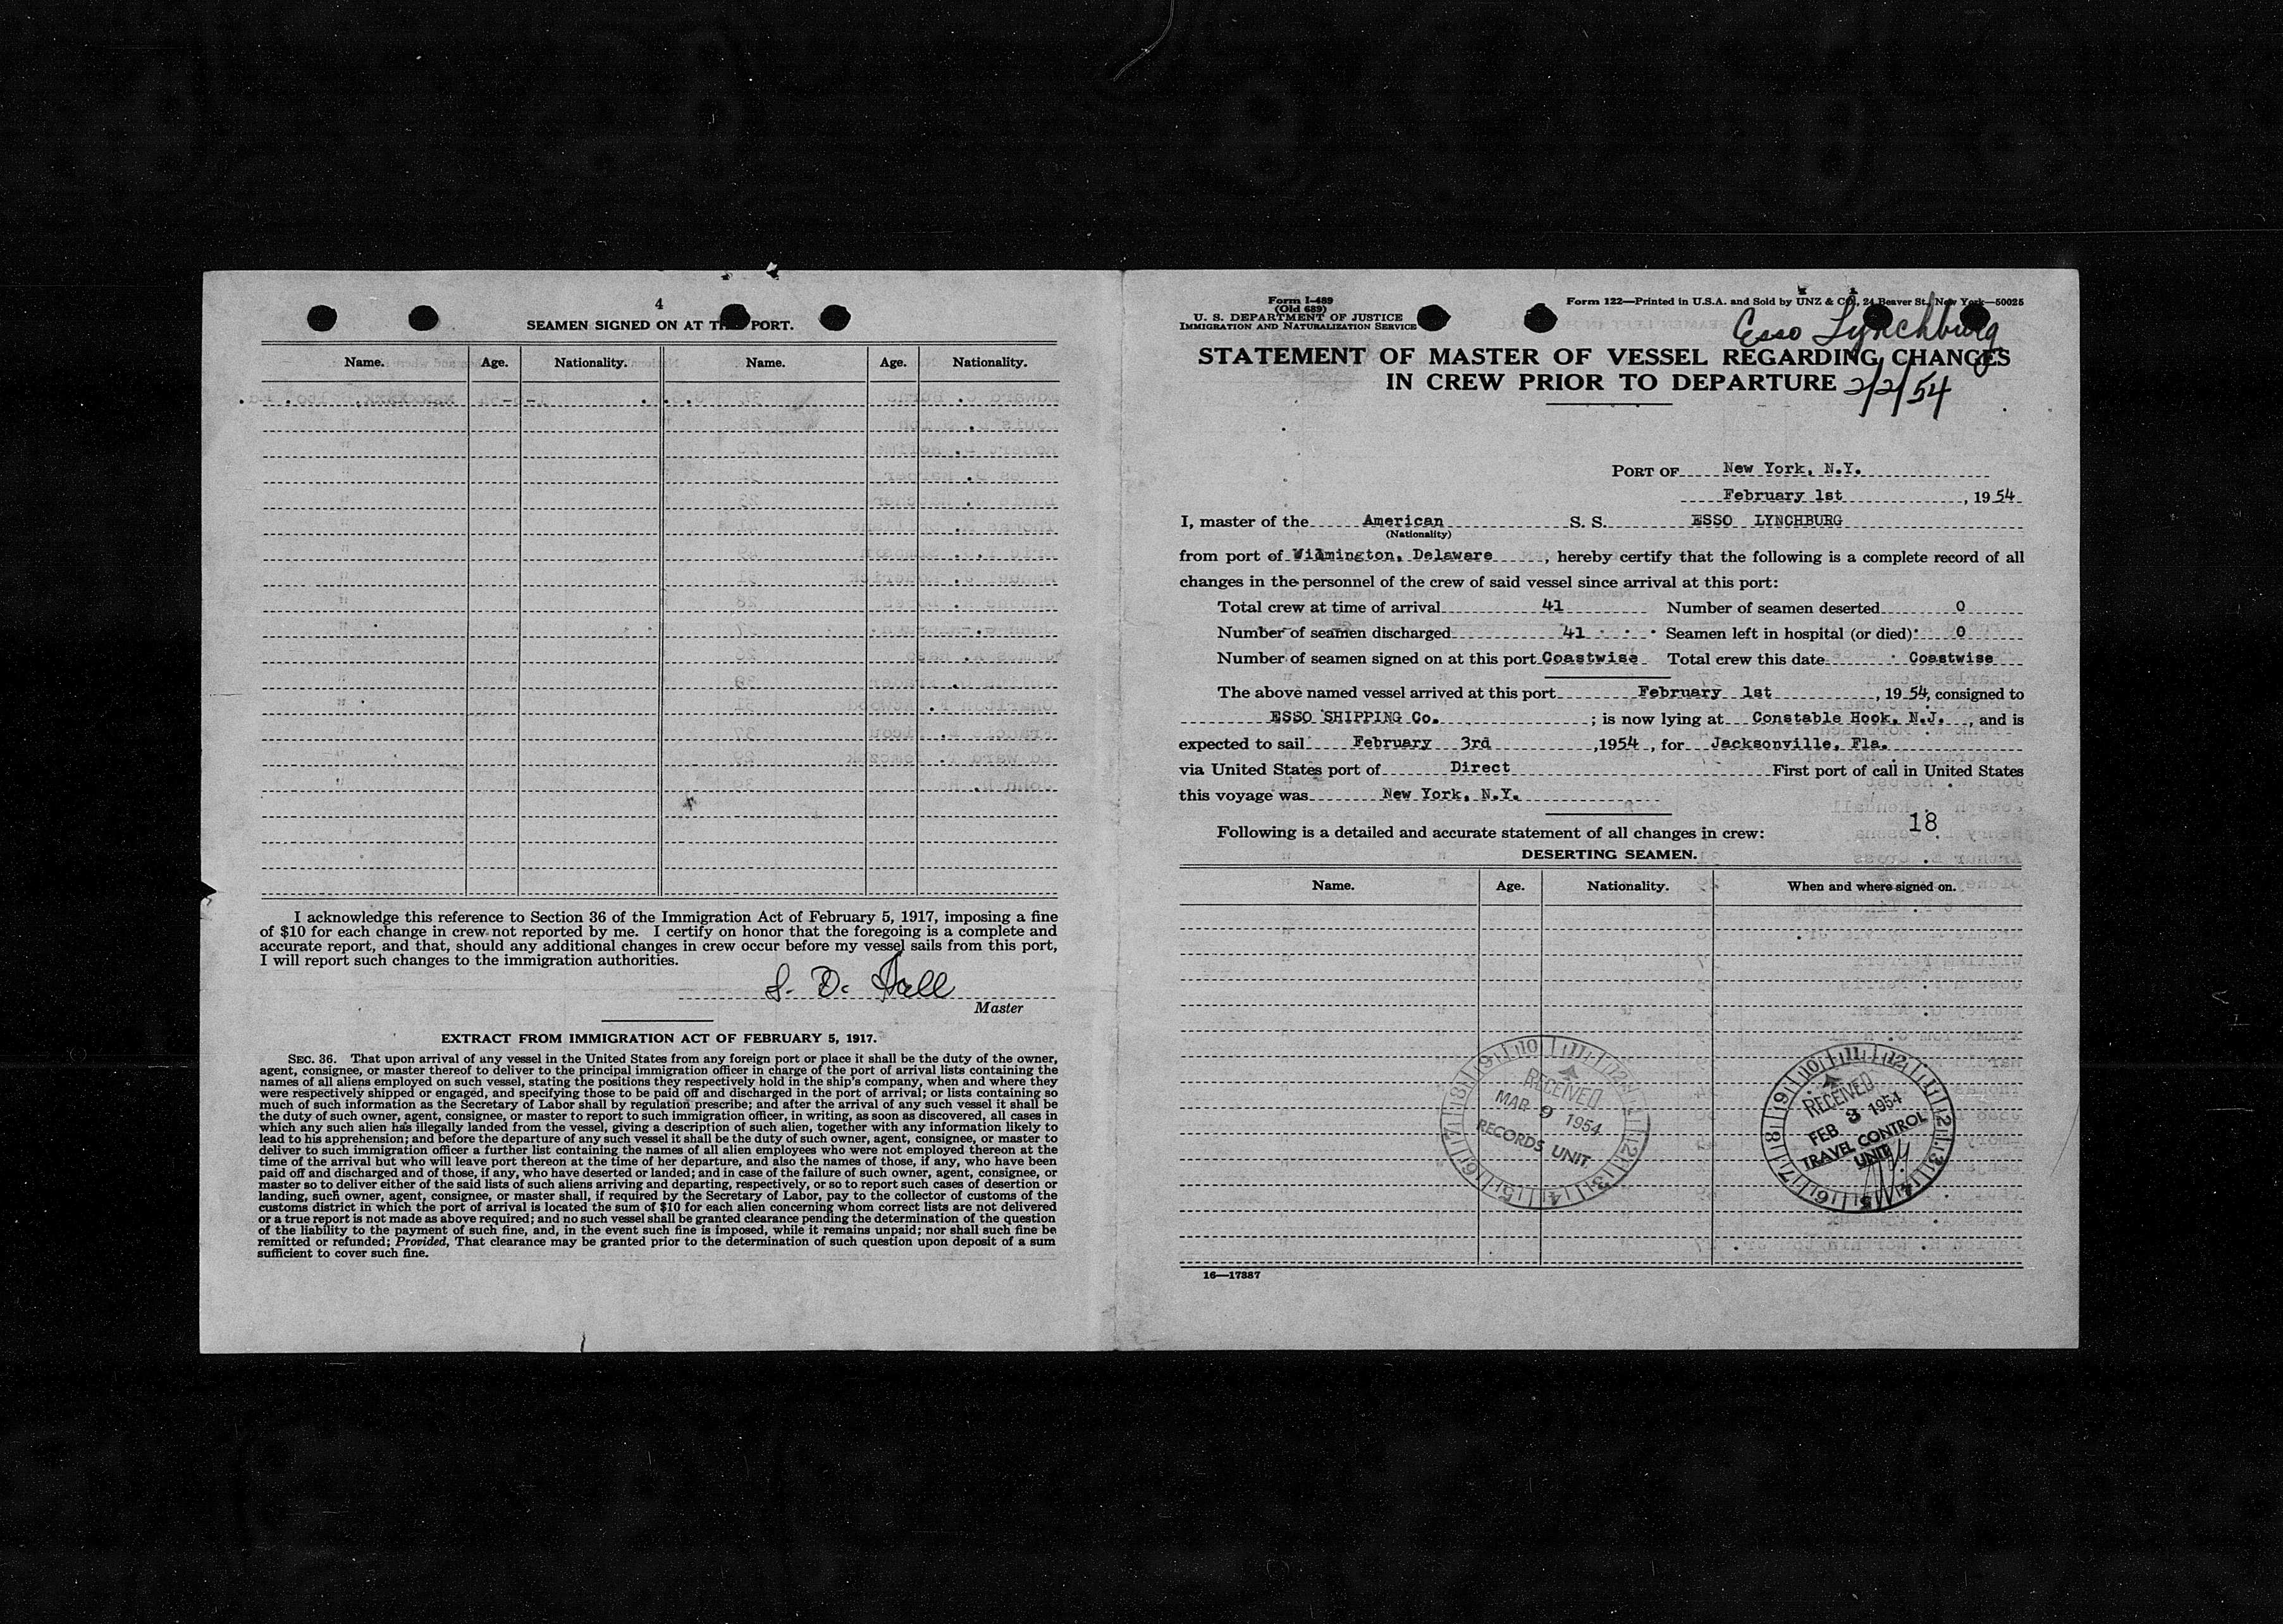 4
SEAMEN SIGNED ON AT THIS PORT.
Name. Age. Nationality. Name. Age. Nationality.
I acknowledge this reference to Section 36 of the Immigration Act of February 5, 1917, imposing a fine
of $10 for each change in crew not reported by me. I certify on honor that the foregoing is a complete and
accurate report, and that, should any additional changes in crew occur before my vessel sails from this port,
I will report such changes to the immigration authorities.
S. D. Hall
Master
EXTRACT FROM IMMIGRATION ACT OF FEBRUARY 5, 1917.
SEC. 36. That upon arrival of any vessel in the United States from any foreign port or place it shall be the duty of the owner,
agent, consignee, or master thereof to deliver to the principal immigration officer in charge of the port of arrival lists containing the
names of all aliens employed on such vessel, stating the positions they respectively hold in the ship's company, when and where they
were respectively shipped or engaged, and specifying those to be paid off and discharged in the port of arrival; or lists containing so
much of such information as the Secretary of Labor shall by regulation prescribe; and after the arrival of any such vessel it shall be
the duty of such owner, agent, consignee, or master to report to such immigration officer, in writing, as soon as discovered, all cases in
which any such alien has illegally landed from the vessel, giving a description of such alien, together with any information likely to
lead to his apprehension; and before the departure of any such vessel it shall be the duty of such owner, agent, consignee, or master to
deliver to such immigration officer a further list containing the names of all alien employees who were not employed thereon at the
time of the arrival but who will leave port thereon at the time of her departure, and also the names of those, if any, who have been
paid off and discharged and of those, if any, who have deserted or landed; and in case of the failure of such owner, agent, consignee, or
master so to deliver either of the said lists of such aliens arriving and departing, respectively, or so to report such cases of desertion or
landing, such owner, agent, consignee, or master shall, if required by the Secretary of Labor, pay to the collector of customs of the
customs district in which the port of arrival is located the sum of $10 for each alien concerning whom correct lists are not delivered
or a true report is not made as above required; and no such vessel shall be granted clearance pending the determination of the question
of the liability to the payment of such fine, and, in the event such fine is imposed, while it remains unpaid; nor shall such fine be
remitted or refunded; Provided, That clearance may be granted prior to the determination of such question upon deposit of a sum
sufficient to cover such fine.
Form I-489
(Old 689)
U. S. DEPARTMENT OF JUSTICE
IMMIGRATION AND NATURALIZATION SERVICE
Form 122—Printed in U.S.A. and Sold by UNZ & CO., 24 Beaver St., New York—50025
Esso Lynchburg
STATEMENT OF MASTER OF VESSEL REGARDING CHANGES
IN CREW PRIOR TO DEPARTURE 2/2/54
PORT OF New York, N.Y.
February 1st, 1954
I, master of the American S. S. ESSO LYNCHBURG
(Nationality)
from port of Wilmington, Delaware, hereby certify that the following is a complete record of all
changes in the personnel of the crew of said vessel since arrival at this port:
Total crew at time of arrival 41 Number of seamen deserted 0
Number of seamen discharged 41 Seamen left in hospital (or died) 0
Number of seamen signed on at this port Coastwise Total crew this date Coastwise
The above named vessel arrived at this port February 1st, 1954, consigned to
ESSO SHIPPING Co. ; is now lying at Constable Hook, N.J., and is
expected to sail February 3rd, 1954, for Jacksonville, Fla.
via United States port of Direct First port of call in United States
this voyage was New York, N.Y.
Following is a detailed and accurate statement of all changes in crew: 18
DESERTING SEAMEN.
Name. Age. Nationality. When and where signed on.
RECEIVED
MAR 9 1954
RECORDS UNIT
RECEIVED
FEB 3 1954
TRAVEL CONTROL
UNIT
16—17387